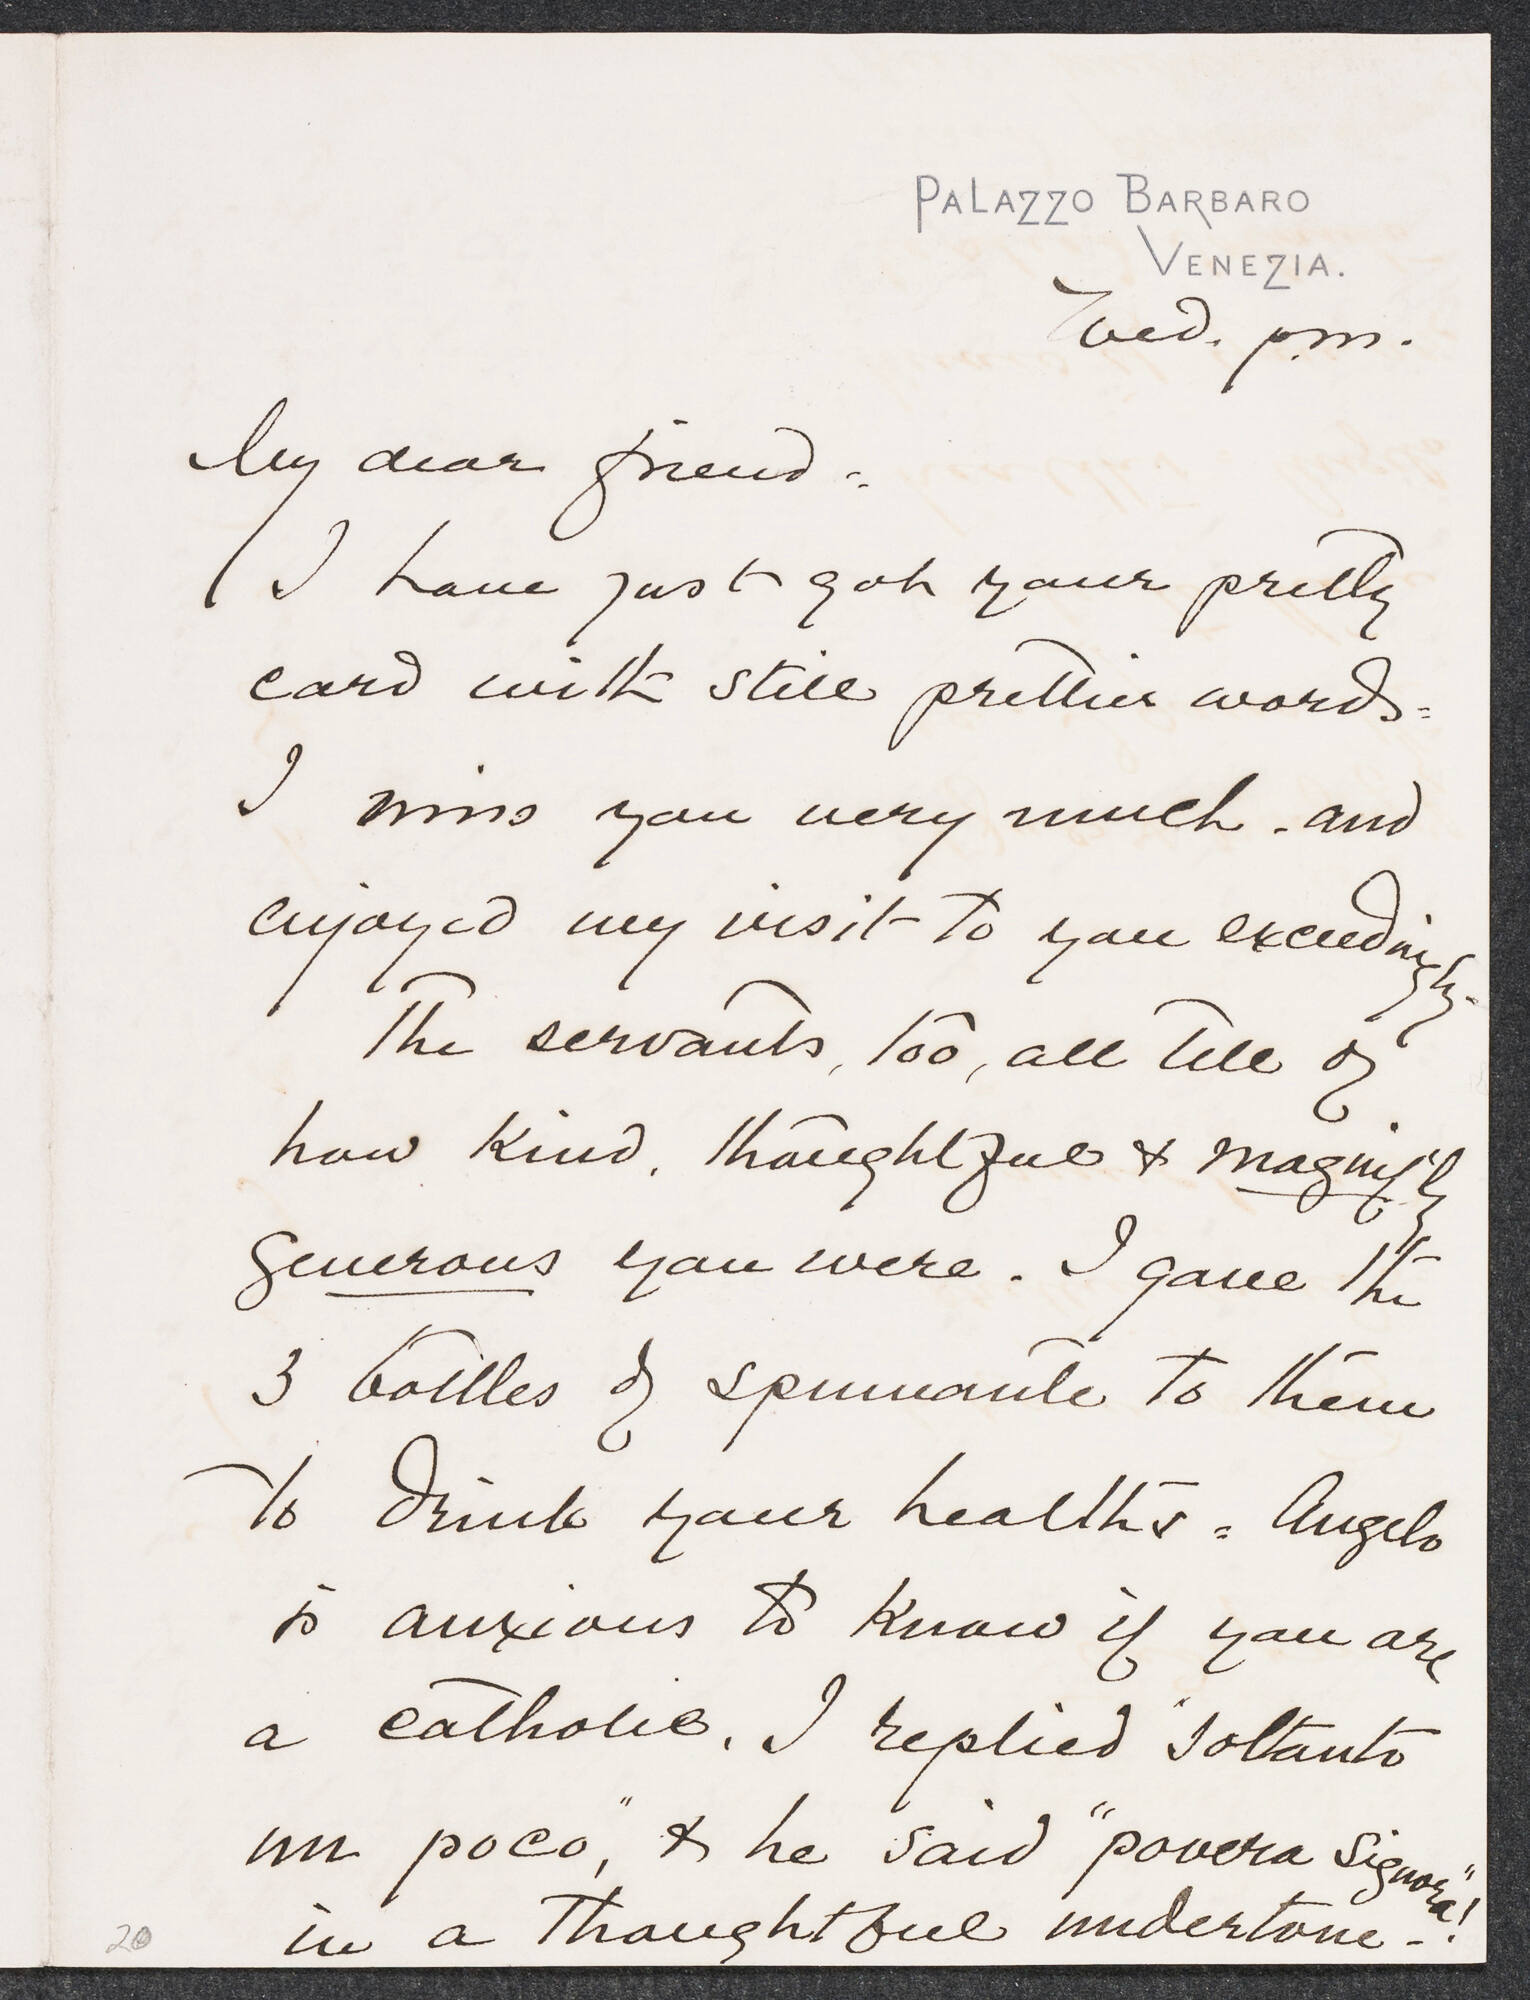 PALAZZO BARBARO
VENEZIA.
Wed. p.m.
My dear friend -
I have just got your pretty
card with still prettier words -
I miss you very much - and
enjoyed my visit to you exceedingly -
The servants, too, all tell of
how kind, thoughtful & magnif'ly
generous you were. I gave the
3 bottles of spumante to them
to drink your healths - Angelo
is anxious to know if you are
a catholic. I replied "soltanto
un poco," & he said "povera signora"!
in a thoughtful undertone - !
20